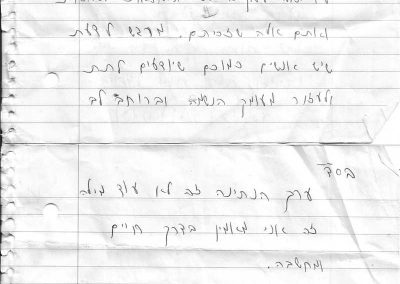 ואתם אלה שזכיתם. מרגש לדעת
שיש אנשים כמוכם שיודעים לתת
ולעזור מעומק הנשמה וברוחב לב
בס"ד
ערך הנתינה זה לא עוד מילה
זה אני מאמין בדרך חיים
ומחשבה.